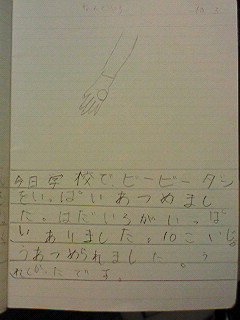 今日学校で、ビービータン
をい。ぱいあつめまし
た。はだいろがい。ぱ
いありました。10こいじ
うあつめられました。う
れしかったです。